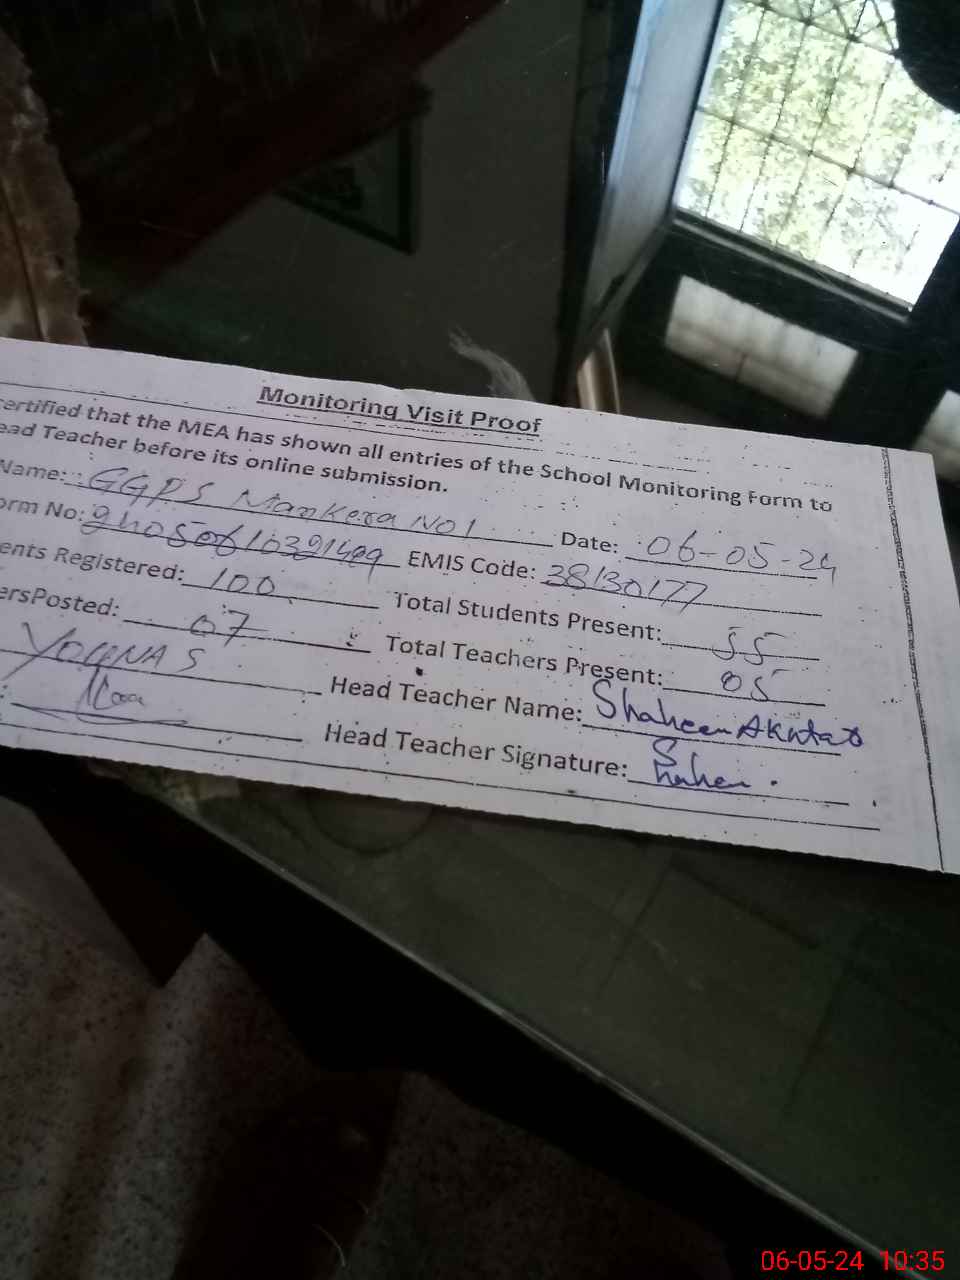 Monitoring Visit Proof
ertified that the MEA has shown all entries of the School Monitoring Form to
ead Teacher before its online submission.
Name: GGPS Mankera NO1 Date: 06-05-24
orm No: EMIS Code: 38130177
ents Registered: 100 Total Students Present: 55
ersPosted: 07 Total Teachers Present: 05
YOUNAS Head Teacher Name: Shaheen Akhtar
Head Teacher Signature: Shaheen
06-05-24 10:35